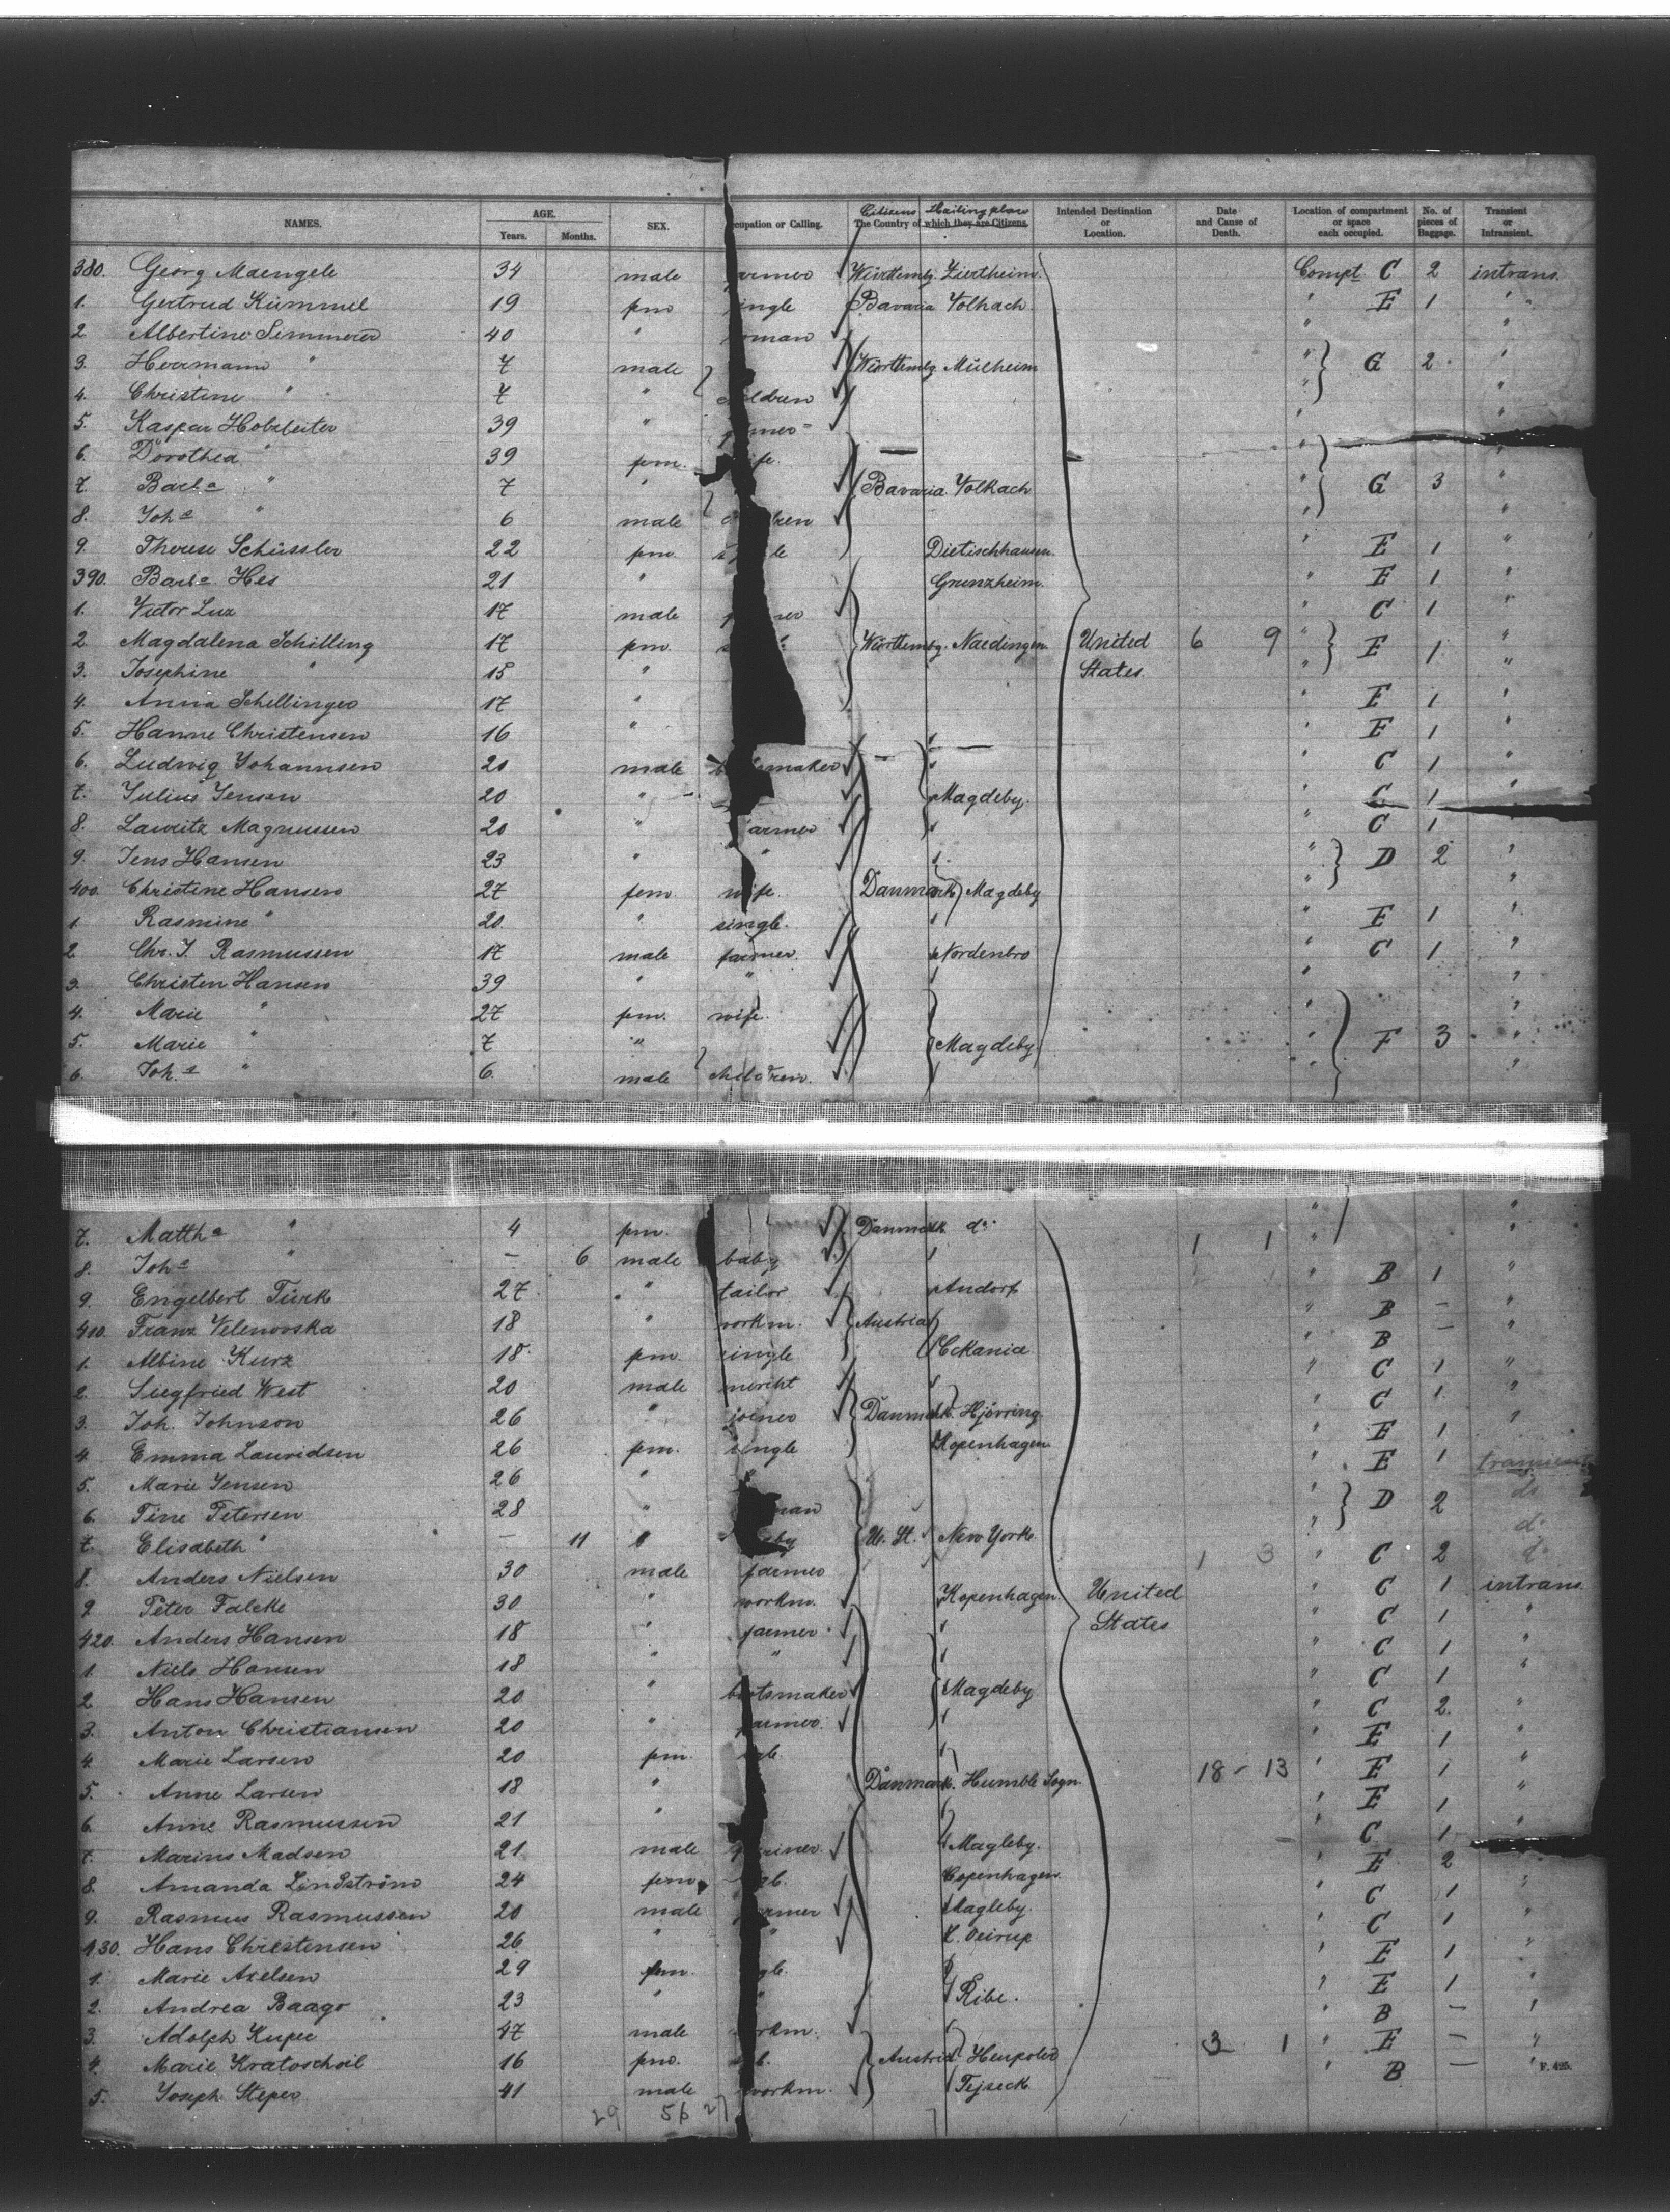 NAMES. AGE. Years. Months. SEX. cupation or Calling. Citizens The Country of which they are Citizens. Hailing place Intended Destination or Location. Date and Cause of Death. Location of compartment or space each occupied. No. of pieces of Baggage. Transient or Intransient.
380. Georg Maengele 34 male armer Württembg. Ziertheim. Compt C 2 intrans.
1. Gertrud Kümmel 19 fem ingle Bavaria Volkach " E 1 "
2. Albertine Simmerer 40 " oman " "
3. Herrmann " 7 male Württembg. Mülheim " G 2 "
4. Christine " 7 " ildren " "
5. Kaspar Hobzleiter 39 " mer " "
6. Dorothea " 39 fem. ife. " "
7. Barba " 7 " Bavaria. Volkach " G 3 "
8. Joha " 6 male c ren " "
9. Therese Schüssler 22 fem. s le Dietischhausen. " E 1 "
390. Barba Hes 21 " Grunzheim. " E 1 "
1. Victor Lux 17 male er " C 1 "
2. Magdalena Schilling 17 fem. s Württembg. Naedingen United 6 9 " E 1 "
3. Josephine " 15 " States. " "
4. Anna Schellinger 17 " " E 1 "
5. Hanne Christensen 16 " " E 1 "
6. Ludwig Johannsen 20 male b maker " C 1 "
7. Julius Jensen 20 " Magdeby. " C 1 "
8. Lauritz Magnussen 20 " armer " C 1
9. Jens Hansen 23 " " " D 2 "
400. Christine Hansen 27 fem wife. Danmark Magdeby " "
1. Rasmine " 20. " single. " E 1 "
2. Chr. J. Rasmussen 17 male farmer. Nordenbro " C 1 "
3. Christen Hansen 39 " " " "
4. Marie " 27 fem. wife. " "
5. Marie " 7 " Magdeby " F 3 "
6. Joha " 6. male children. " "
7. Mattha " 4 fem. Danmark do " "
8. Joha " – 6 male baby 1 1 "
9. Engelbert Türk 27. " tailor Andorf " B 1 "
410. Franz Velenovska 18 " workm. Austria " B – "
1. Albine Kurz 18. fem. single Eckania " B – "
2. Siegfried West 20 male mercht " C 1 "
3. Joh. Johnson 26 " joiner Danmark. Hjörring " C 1 "
4. Emma Lauridsen 26 fem. single Kopenhagen " E 1 "
5. Marie Jensen 26 " " E 1 transient
6. Tine Petersen 28 " man " D 2 do
7. Elisabeth " – 11 " by U. St. New York. " do
8. Anders Nielsen 30 male farmer 1 3 " C 2 do
9. Peter Falcke 30 " workm. Kopenhagen. United " C 1 intrans.
420. Anders Hansen 18 " farmer States " C 1 "
1. Niels Hansen 18 " " " C 1 "
2. Hans Hansen 20 " bootsmaker Magdeby " C 1 "
3. Anton Christiansen 20 " farmer. " C 2. "
4. Marie Larsen 20 fem. gle " E 1 "
5. Anne Larsen 18 " Danmark. Humble Sogn. 18 – 13 " E 1 "
6. Anne Rasmussen 21 " " E 1 "
7. Marius Madsen 21 male Magleby. C 1
8. Amanda Lindström 24 fem gle. Copenhagen. " E 2 "
9. Rasmus Rasmussen 20 male farmer Magleby. " C 1 "
430. Hans Christensen 26 " " " C 1 "
1. Marie Axelsen 29 fem. gle. " E 1 "
2. Andrea Baago 23 " " Ribe. " E 1 "
3. Adolph Kupec 47 male workm. " B – "
4. Marie Kratoschvil 16 fem. Austria 3 1 " E – "
5. Joseph Steper 41 male workm. Tejseck " B – "
F. 425.
29 56 27